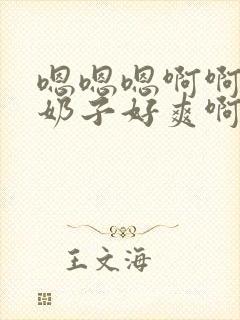 嗯嗯嗯啊啊
奶子好爽啊
王文海